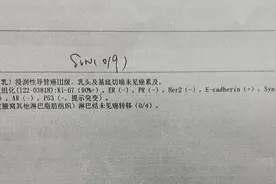 SLN(0/9)
乳）浸润性导管癌III级，乳头及基底切端未见癌累及。
组化(122-03818):Ki-67（90%+），ER（-），PR（-），Her2（-），E-cadherin（+），Syn
），AR（-），P53（-，提示突变）。
腋窝其他淋巴脂肪组织）淋巴结未见癌转移（0/4）。